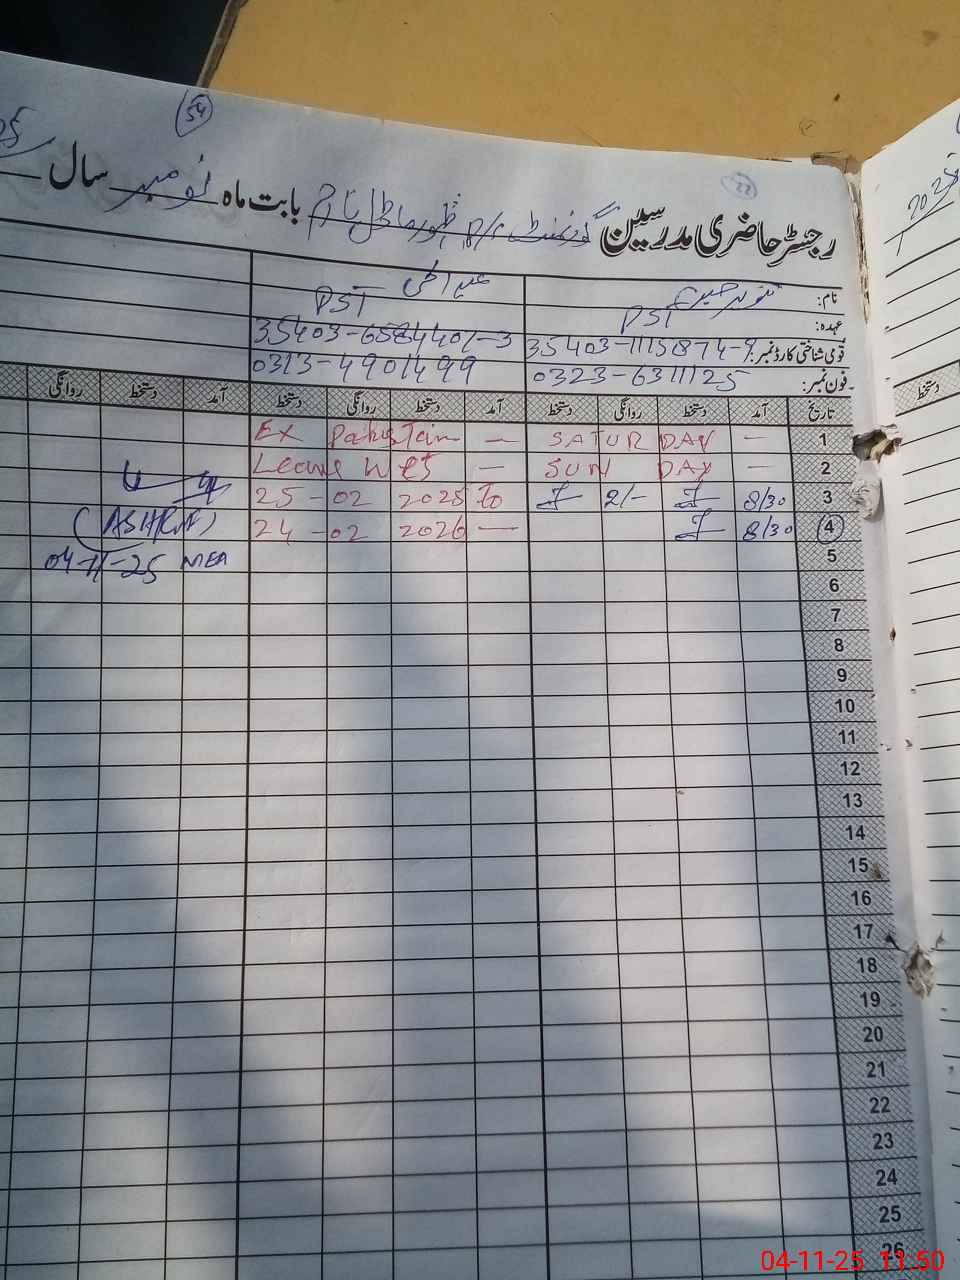 54
22
رجسٹر حاضری مدرسین گورنمنٹ بابت ماہ نومبر سال
نام: تنویر حسین
عہدہ: PST PST
قومی شناختی کارڈ نمبر: 35403-11151874-9
فون نمبر: 0323-6311125 0313-4901499
تاریخ آمد دستخط روانگی دستخط آمد دستخط روانگی دستخط آمد دستخط روانگی
1 SATUR DAY — Ex Pakistan —
2 SUN DAY — Leave w e f —
3 8/30 2/- 25-02 2025 to
4 8/30 24-02 2026 —
(ASHRAF)
04-11-25 MEA
5
6
7
8
9
10
11
12
13
14
15
16
17
18
19
20
21
22
23
24
25
26
دستخط
04-11-25 11:50